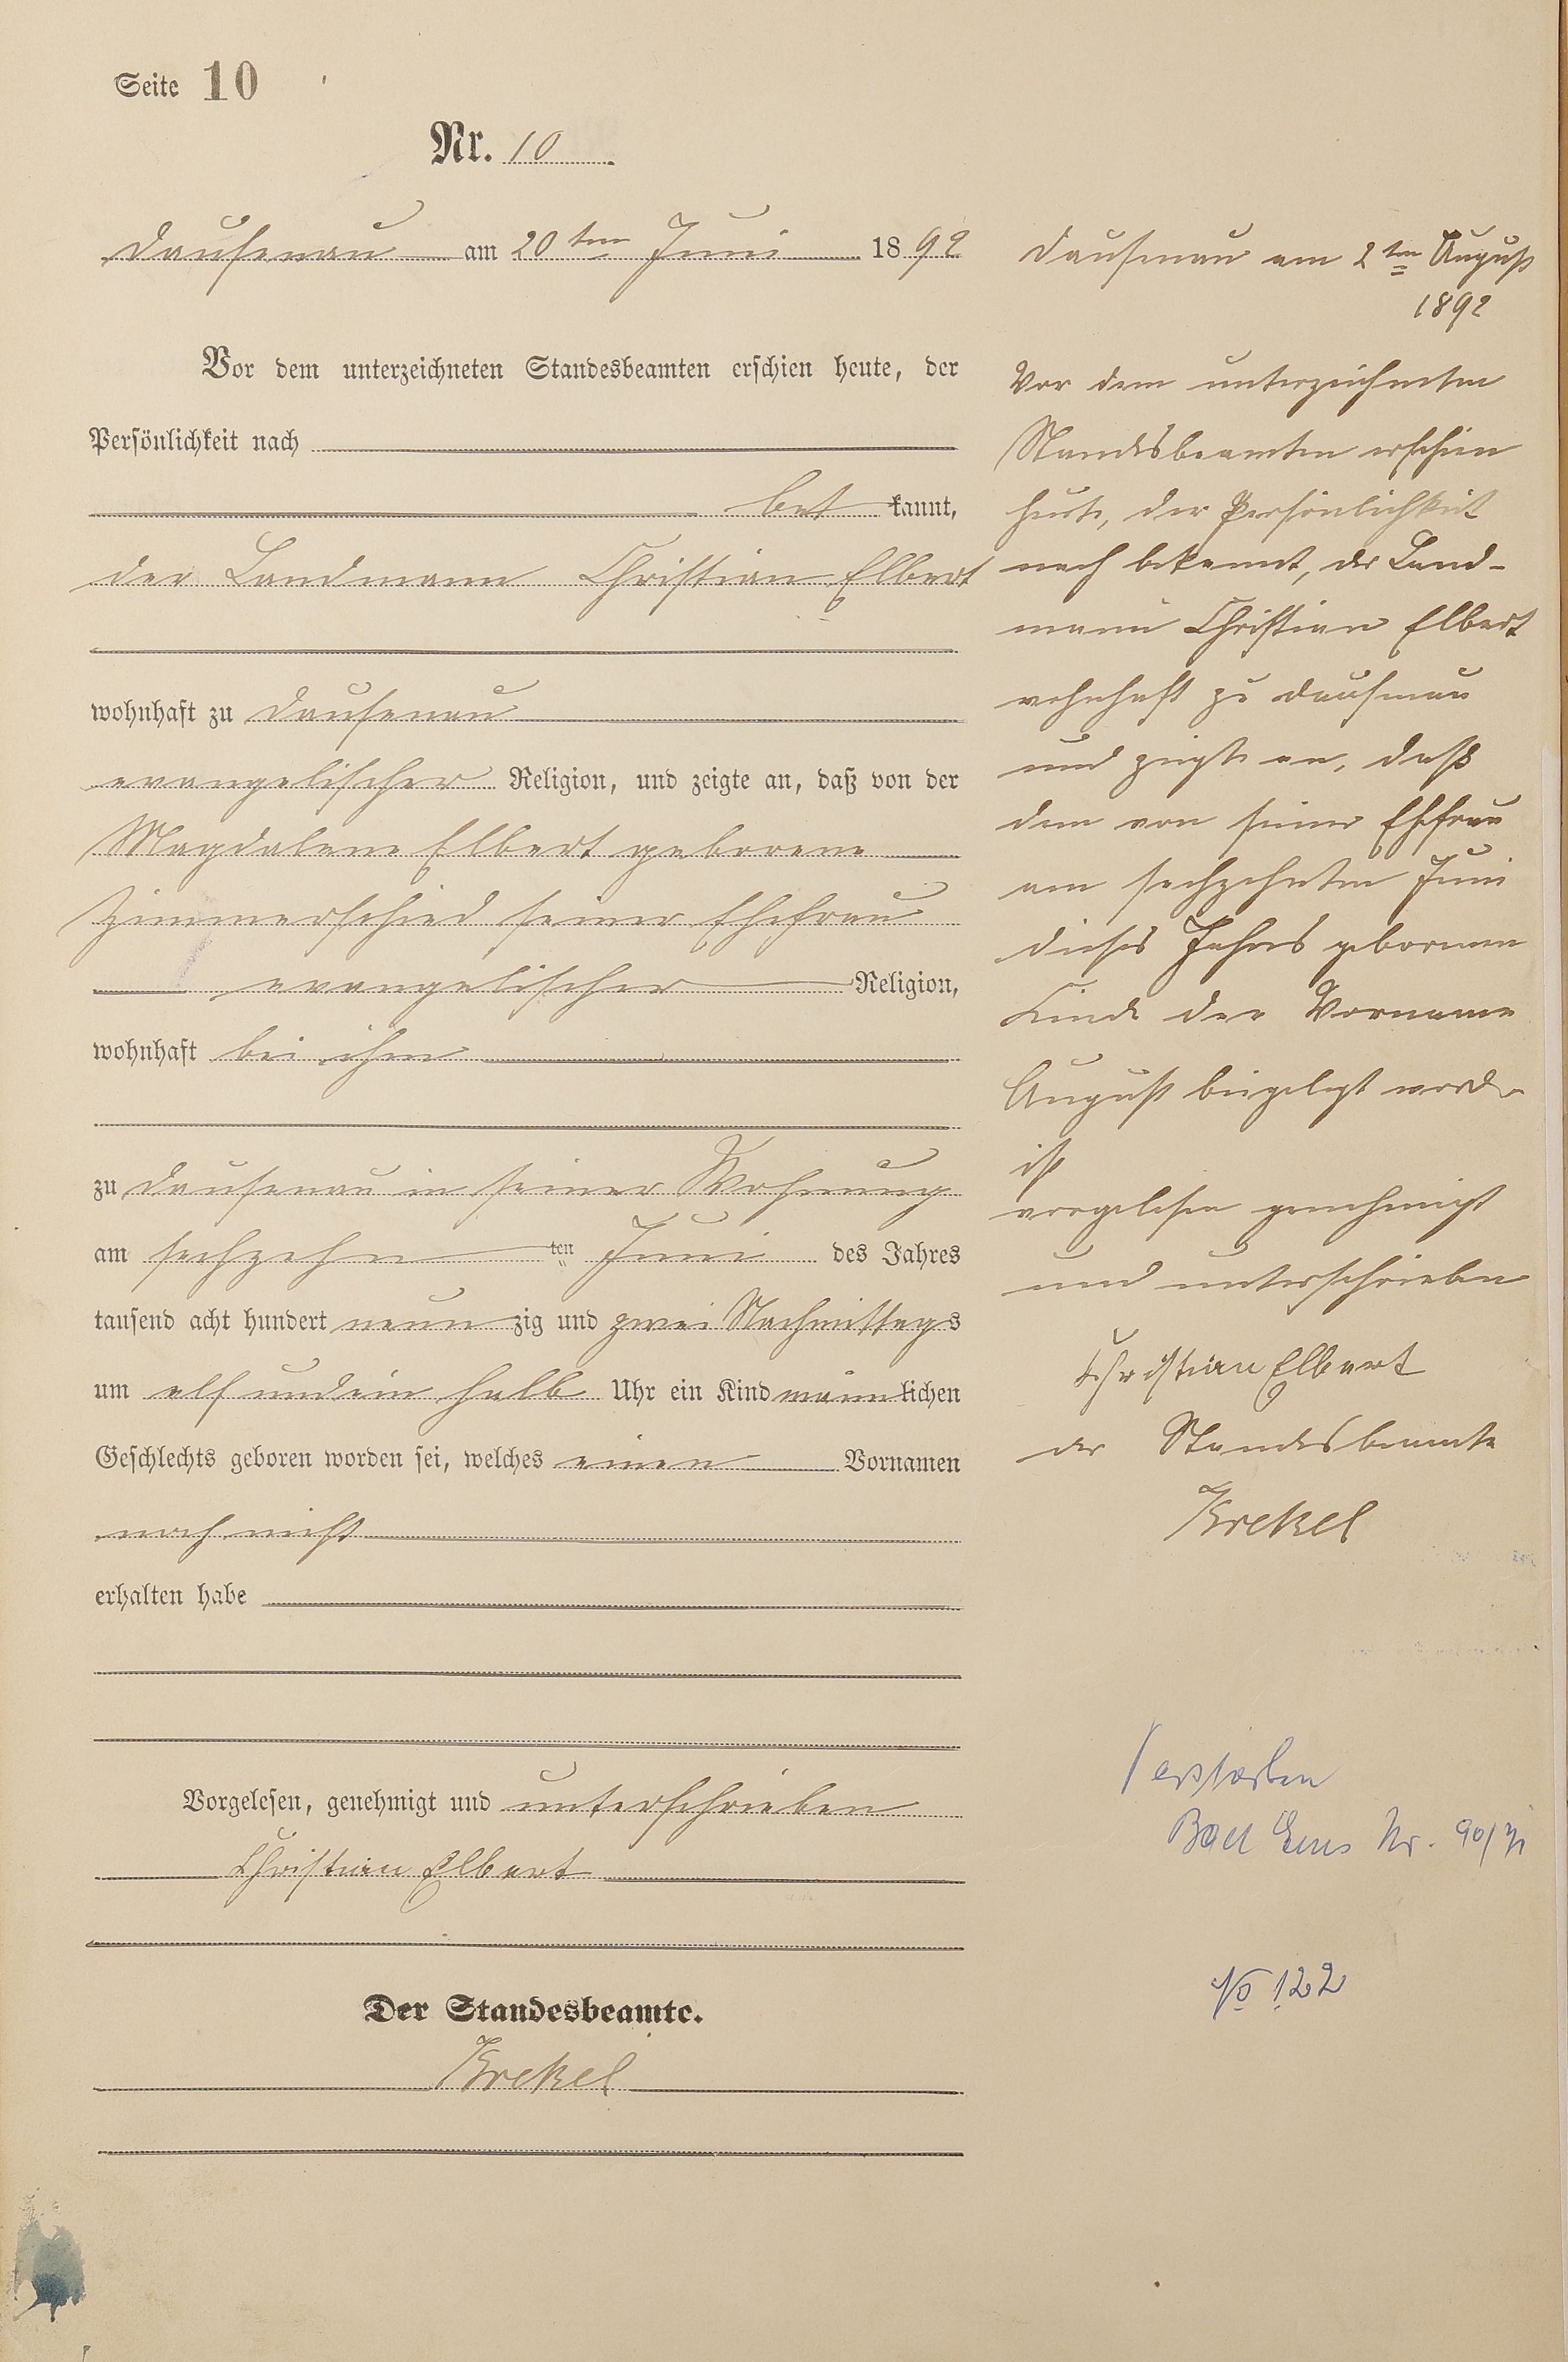 Seite 10
Nr. 10
Dausenau am 20ten Juni 1892
Vor dem unterzeichneten Standesbeamten erschien heute, der
Persönlichkeit nach
be kannt,
der Landmann Christian Elbert
wohnhaft zu Dausenau
evangelischer Religion, und zeigte an, daß von der
Magdalene Elbert geborene
Zimmerschied seiner Ehefrau
evangelischer Religion,
wohnhaft bei ihm
zu Dausenau in seiner Wohnung
am sechzehn ten Juni des Jahres
tausend acht hundert neun zig und zwei Nachmittags
um elf und ein halb Uhr ein Kind männlichen
Geschlechts geboren worden sei, welches einen Vornamen
noch nicht
erhalten habe
Vorgelesen, genehmigt und unterschrieben
Christian Elbert
Der Standesbeamte.
Krekel
Dausenau am 2ten August
1892
Vor dem unterzeichneten
Standesbeamten erschien
heute, der Persönlichkeit
nach bekannt, der Land-
mann Christian Elbert
wohnhaft zu Dausenau
und zeigte an, daß
dem von seiner Ehefrau
am sechzehnten Juni
dieses Jahres geborenen
Kinde der Vorname
August beigelegt worden
ist
vorgelesen genehmigt
und unterschrieben
Christian Elbert
der Standesbeamte
Krekel
Verstorben
Bad Ems Nr. 90/71
No 122